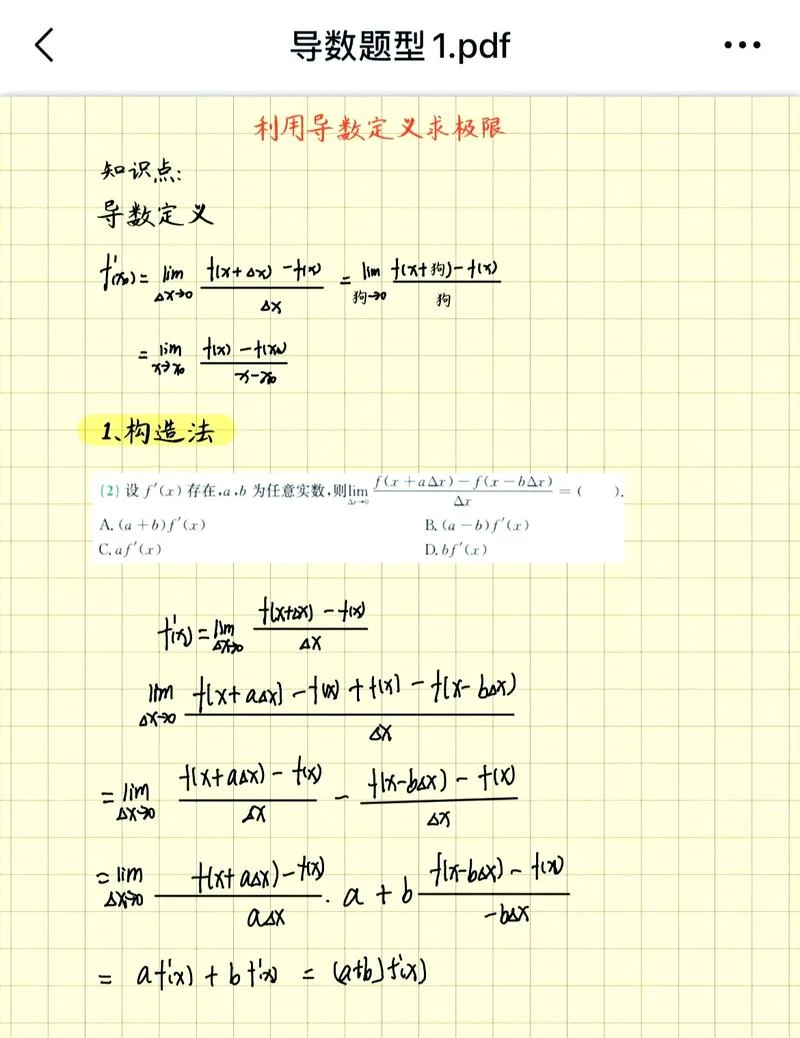 导数题型1.pdf
利用导数定义求极限
知识点:
导数定义
f'(x₀)= lim Δx→0 (f(x+Δx) -f(x))/Δx = lim 狗→0 (f(x+狗)-f(x))/狗
= lim x→x₀ (f(x) -f(x₀))/(x-x₀)
1、构造法
(2) 设 f'(x) 存在,a,b 为任意实数,则 lim Δx→0 (f(x+aΔx)-f(x-bΔx))/Δx = ( ).
A. (a+b)f'(x) B. (a-b)f'(x)
C. af'(x) D. bf'(x)
f'(x) = lim Δx→0 (f(x+Δx) -f(x))/Δx
lim Δx→0 (f(x+aΔx) -f(x) +f(x) -f(x-bΔx))/Δx
= lim Δx→0 (f(x+aΔx) -f(x))/Δx - (f(x-bΔx) -f(x))/Δx
= lim Δx→0 (f(x+aΔx)-f(x))/(aΔx) · a + b (f(x-bΔx) -f(x))/(-bΔx)
= af'(x) + bf'(x) = (a+b)f'(x)